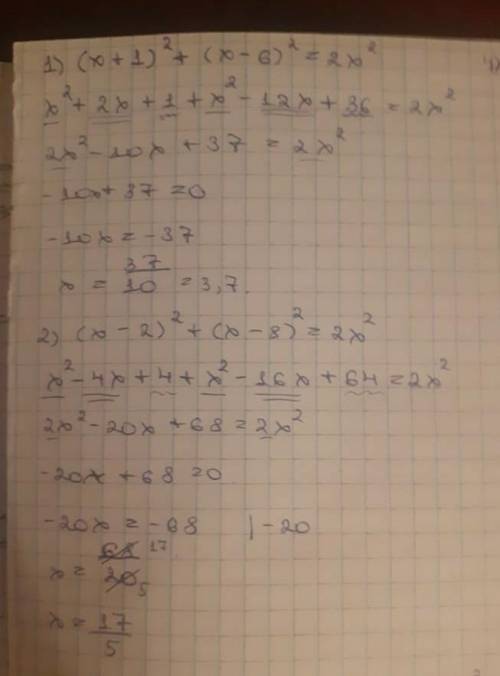 1) (x + 1)² + (x - 6)² = 2x²
x² + 2x + 1 + x² - 12x + 36 = 2x²
2x² - 10x + 37 = 2x²
-10x + 37 = 0
-10x = -37
x = 37/10 = 3,7.
2) (x - 2)² + (x - 8)² = 2x²
x² - 4x + 4 + x² - 16x + 64 = 2x²
2x² - 20x + 68 = 2x²
-20x + 68 = 0
-20x = -68 | -20
x = 68 17/20 5
x = 17/5